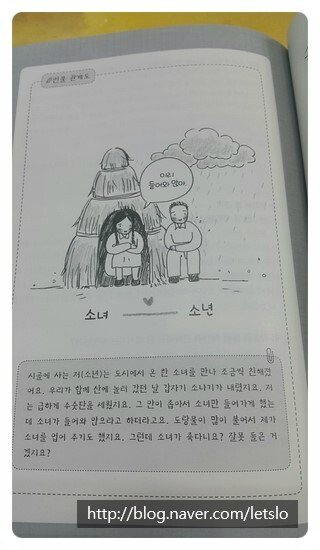 인물 관계도
이리
들어와 앉아
소녀
소년
시골에 사는 저(소년)는 도시에서 온 한 소녀를 만나 조금씩 친해졌
어요. 우리가 함께 산에 놀러 갔던 날 갑자기 소나기가 내렸지요. 저
는 급하게 수숫단을 세웠지요. 그 안이 좁아서 소녀만 들어가게 했는
데 소녀가 들어와 앉으라고 하더라고요. 도랑물이 많이 불어서 제가
소녀를 업어 주기도 했지요. 그런데 소녀가 죽다니요? 잘못 들은 거
겠지요?
http://blog.naver.com/letslo